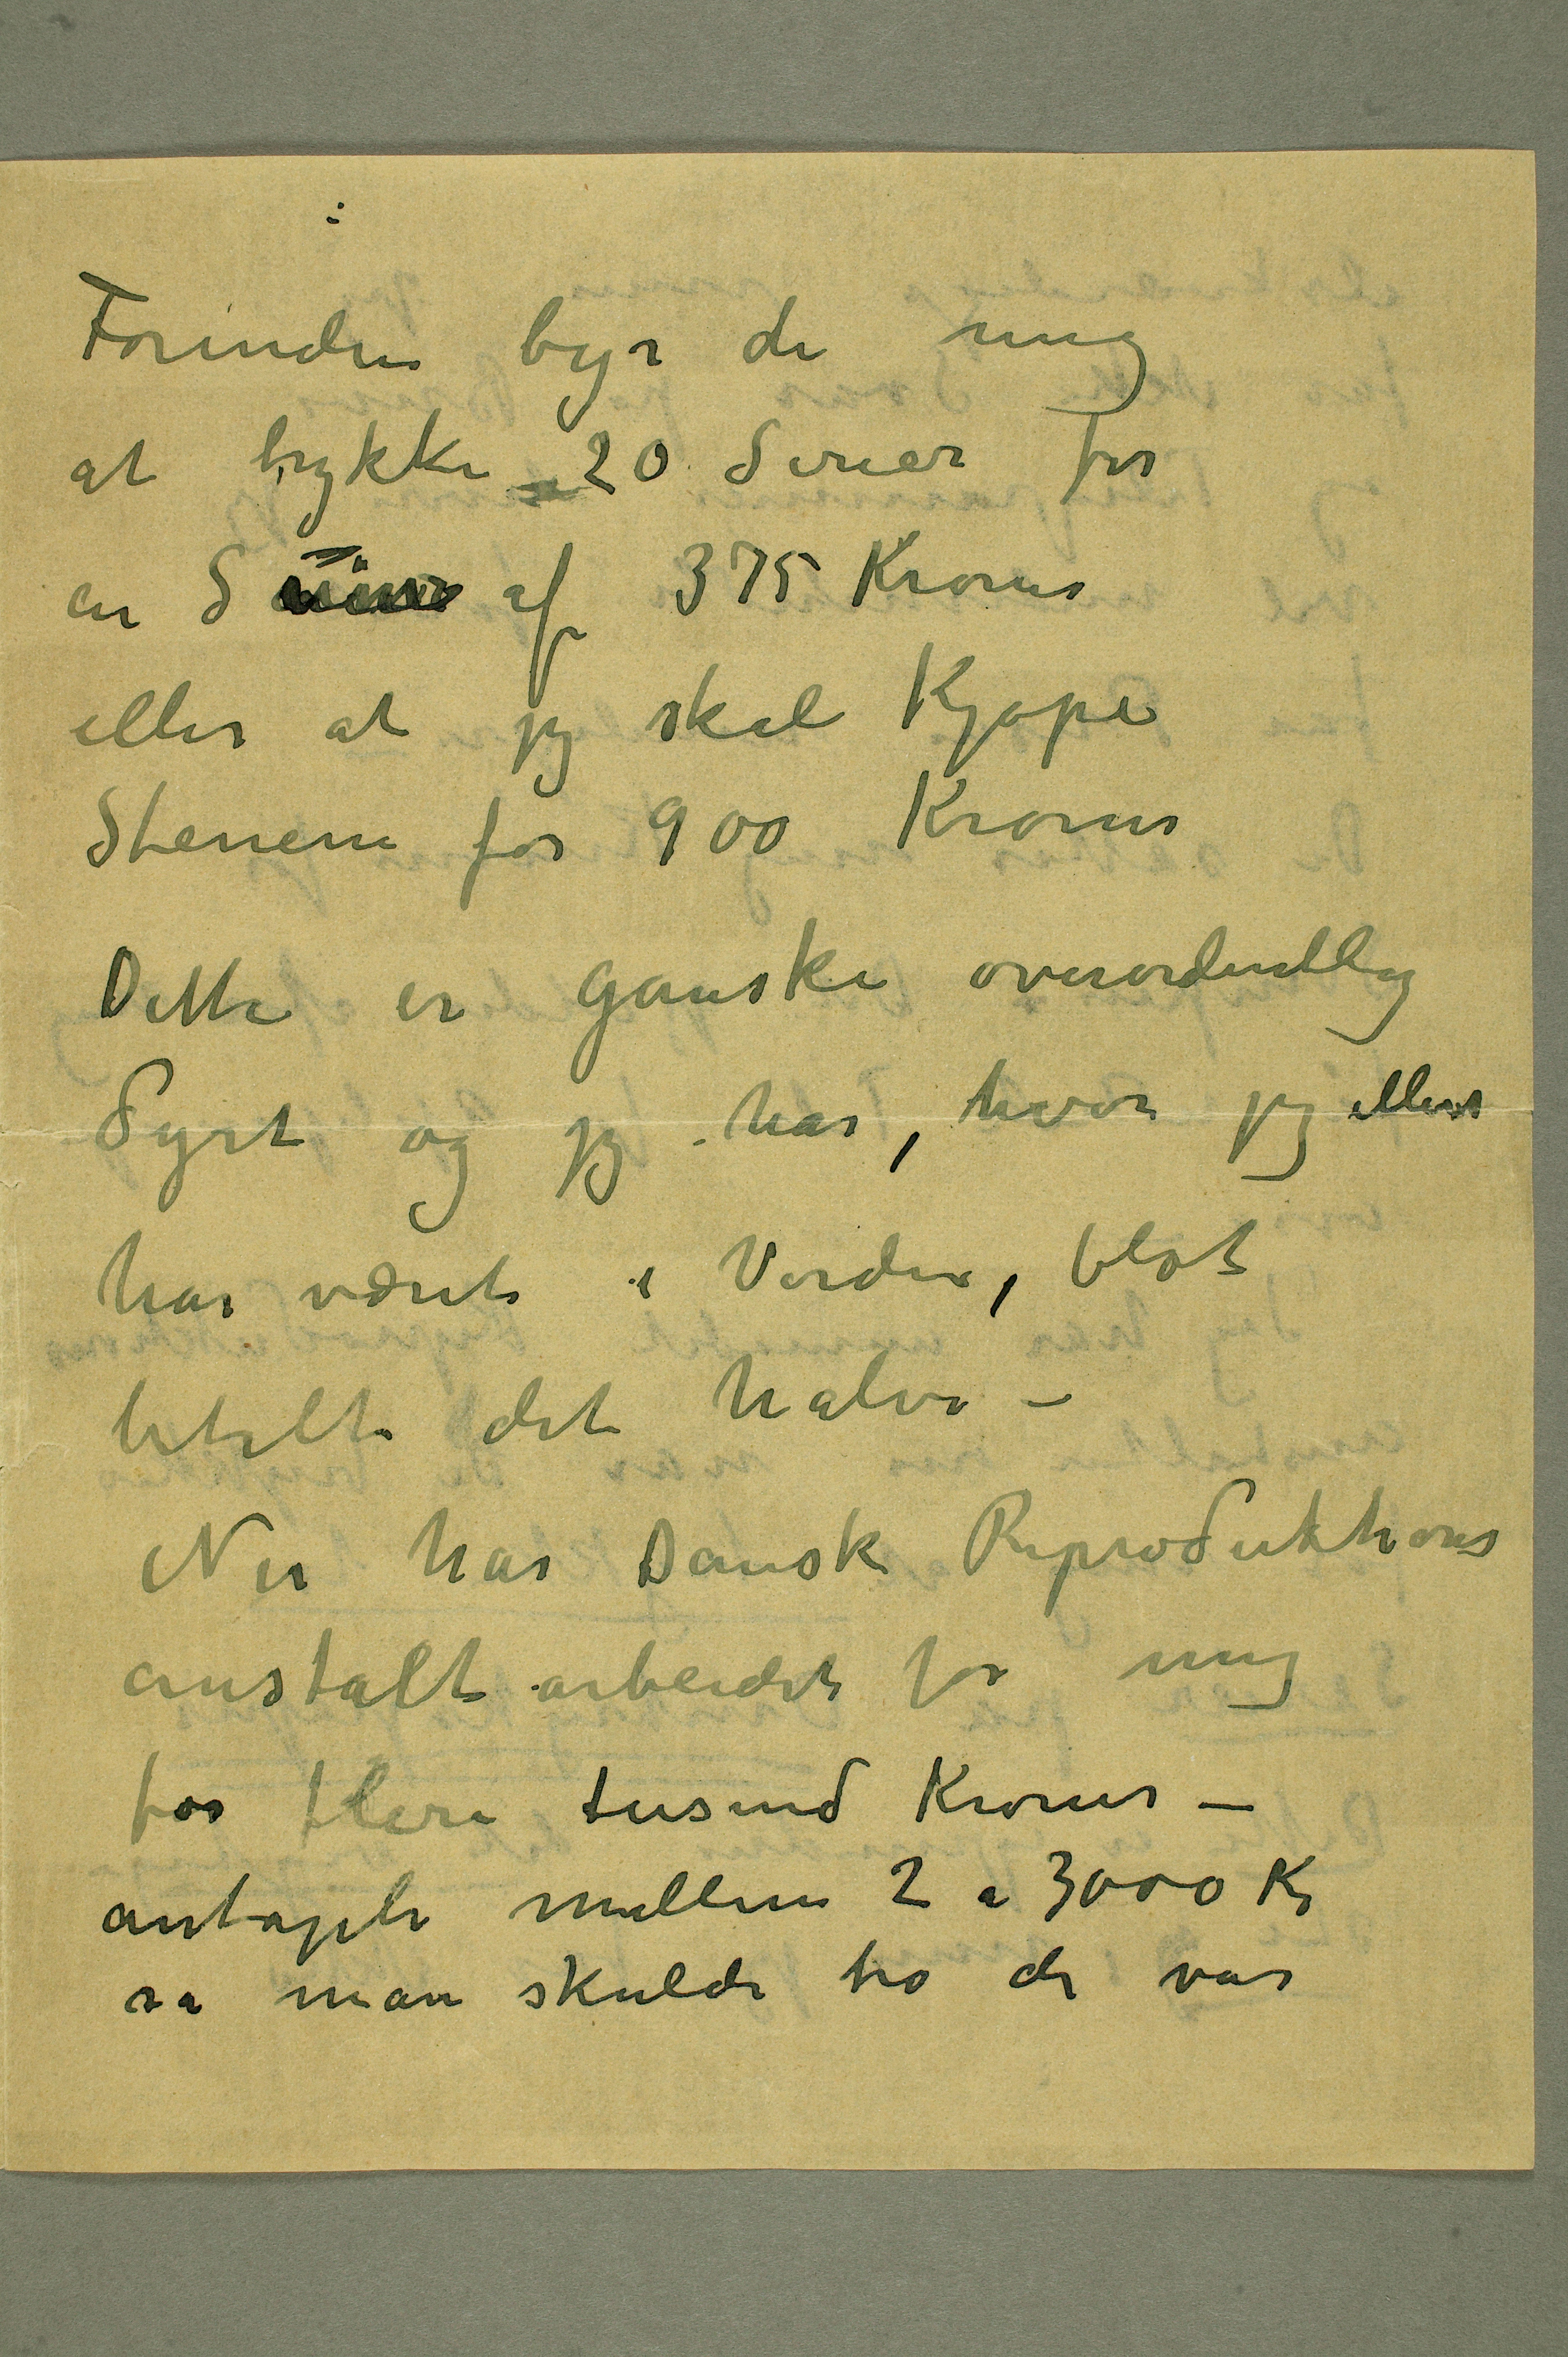 Forinden byr de mig
at trykke 20 Serier for
en S af 375 Kroner
eller at jeg skal Kjøpe
Stenene for 900 Kroner
Dette er ganske overordentlig
Dyrt og jeg har, hvor jeg ellers
har været i Verden, blot
betalt det halve –
Nu har Dansk Reproduktions
anstalt arbeidet for mig
for flere tusind Kroner –
antagelig mellem 2 a 3000 Kr
sa man skulde tro de var